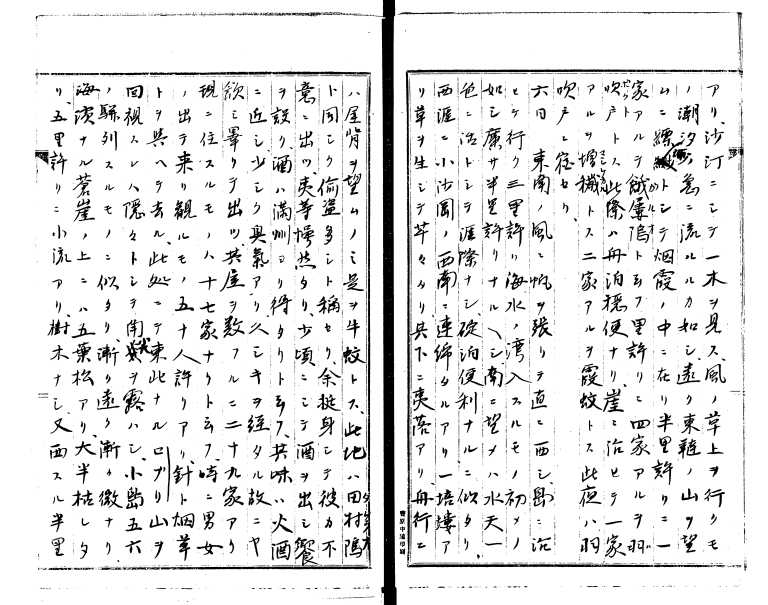 アリ沙汀ニシテ一木ヲ見ス風ノ草上ヲ行クモ
ノ潮汐ノ急ニ流ルルカ如シ遠ク東韃ノ山ヲ望
ムニ縹緲トシテ烟霞ノ中ニ在リ半里許リニ一
家アルヲ餓塢トエフ里許リニ四家アルヲ羽
吹戸トス此際ハ舟泊穏便ナリ崖ニ沿ヒテ一家
アルヲ増穢トス二家アルヲ霞蚊トス此夜ハ羽
吹戸ニ宿セリ
六日東南ノ風ニ帆ヲ張リテ直ニ西シ島ニ沿
ヒテ行ク三里許ハ海水ノ湾入スルモノ初メノ
如シ廣サ半里許リナルヘシ南ニ望メハ水天一
色ニ浩トシテ涯際ナシ碇泊便利ナルニ似タリ
西涯ニ小沙岡ノ西南ニ連綿タルアリ一培塿ア
リ草ヲ生シテ芊々タリ其下ニ夷落アリ舟行ニ
ハ屋背ヲ望ムノミ是ヲ牛蚊トス此地ハ田村塢
ト同シク偷盗多シト稱セリ余挺身シテ彼カ不
意ニ出ツ夷等愕然タリ少頃ニシテ酒ヲ出シ饗
ヲ設ク酒ハ満州ヨリ得タリト云フ其味ハ火酒
ニ近シ少シク臭氣アリ久シキヲ經タル故ニヤ
飲ミ畢リテ出ツ其屋ヲ数フルニ二十九家アリ
現ニ住スルモノハ十七家ナリト云フ時ニ男女
ノ出テ来リ観ルモノ五十人許リアリ針ト烟草
トヲ與ヘテ去ル此処ニテ東此ナルログリ山ヲ
回視スレハ隠々トシテ南ヲ露ハシ小島五六
ノ駢列スルモノニ似タリ漸ク遠ク漸ク微ナリ
海濱ナル蒼崖ノ上ニハ五葉松アリ大半枯レタ
リ五里許リニ小流アリ樹木ナシ又西スル半里